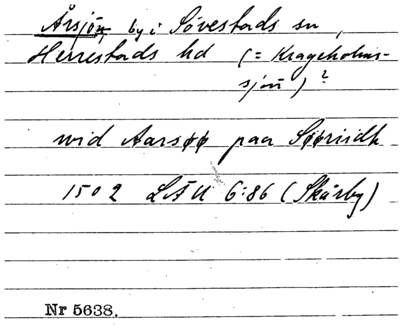 Årsjön, by i Sövestads sn,
Herrestads hd (= Krageholms-
sjön)?
wid Aarsøø paa Søøriidh
1502 LÄU 6:86 (Skårby)
Nr 5638.